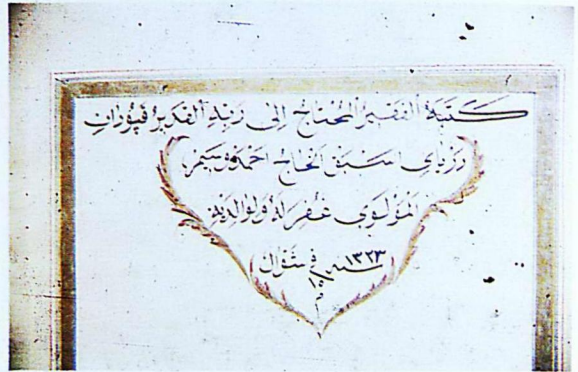 كتبه الفقير المحتاج إلى ربه القدير قپودان
دریای اسبق الحاج احمد وسيم
المولوي غفر له ولوالديه
في ١٥ شوال سنة ١٣٢٣
م